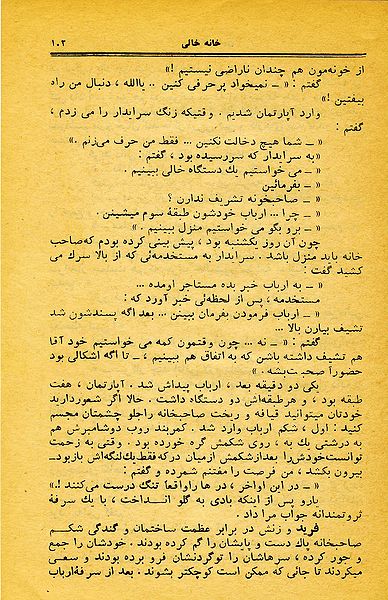 خانه خالی ۱۰۳
از خونه‌مون هم چندان ناراضی نیستیم !»
گفتم : « ـ نمیخواد پرحرفی کنین .. یاالله ، دنبال من راه
بیفتین !»
وارد آپارتمان شدیم . وقتیکه زنگ سرایدار را می زدم ،
گفتم :
« ـ شما هیچ دخالت نکنین ... فقط من حرف می‌زنم .»
«به سرایدار که سررسیده بود ، گفتم :
« ـ می خواستیم یك دستگاه خالی ببینیم .
« ـ بفرمائین
« ـ صاحبخونه تشریف ندارن ؟
« ـ چرا ... ارباب خودشون طبقهٔ سوم میشینن .
« ـ برو بگو می خواستیم منزل ببینیم . »
چون آن روز یکشنبه بود ، پیش بینی کرده بودم که‌صاحب
خانه باید منزل باشد . سرایدار به مستخدمه‌ئی که از بالا سرك می
کشید گفت :
« ـ به ارباب خبر بده مستاجر اومده ...
مستخدمه ، پس از لحظه‌ئی خبر آورد که :
« ـ ارباب فرمودن بفرمان ببینن ... بعد اگه پسندشون شد
تشیف بیارن بالا ...
گفتم : « ـ نه ... چون وقتمون کمه می خواستیم خود آقا
هم تشیف داشته باشن که به اتفاق هم ببینیم ، ـ تا اگه اشکالی بود
حضوراً صحبت‌بشه . »
یکی دو دقیقه بعد ، ارباب پیداش شد . آپارتمان ، هفت
طبقه بود ، و هرطبقه‌اش دو دستگاه داشت . حالا اگر شعوردارید
خودتان میتوانید قیافه و ریخت صاحبخانه راجلو چشمتان مجسم
کنید : اول ، شکم ارباب وارد شد . کمربند روب دوشامبرش هم
به درشتی یك به ، روی شکمش گره خورده بود . وقتی به زحمت
توانست‌خودش‌را بعدازشکمش ازمیان درکه‌فقط‌یك‌لنگه‌اش بازبود‌ـ
بیرون بکشد ، من فرصت را مغتنم شمرده و گفتم :
« ـ در این اواخر ، در ها راواقعاً تنگ درست می‌کنند !.»
یارو پس از اینکه بادی به گلو انداخت ، با یك سرفهٔ
ثروتمندانه جواب مرا داد .
فرید و زنش در برابر عظمت ساختمان و گندگی شکم
صاحبخانه پاك دست و پایشان را گم کرده بودند . خودشان را جمع
و جور کرده ، سرهاشان را توگردنشان فرو برده بودند و سعی
میکردند تا جائی که ممکن است کوچکتر بشوند . بعد از سرفهٔ‌ارباب